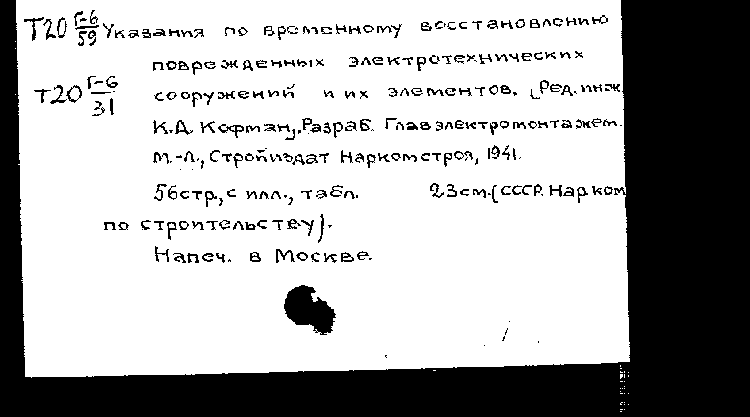 Т20 Г-6/59 Указания по временному восстановлению
поврежденных электротехнических
Т20 Г-6/31 сооружений и их элементов. [Ред. инж.
К.Д. Кофман]. Разраб. Главэлектромонтажем.
М.-Л., Стройиздат Наркомстроя, 1941.
56стр., с илл., табл. 23см. (СССР. Нарком
по строительству).
Напеч. в Москве.